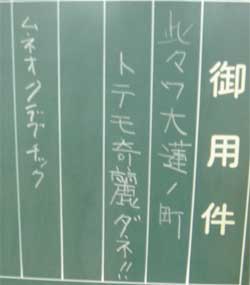 御用件
此々ワ大蓮ノ町
トテモ奇麗ダネ!!
ムネオノデブチック